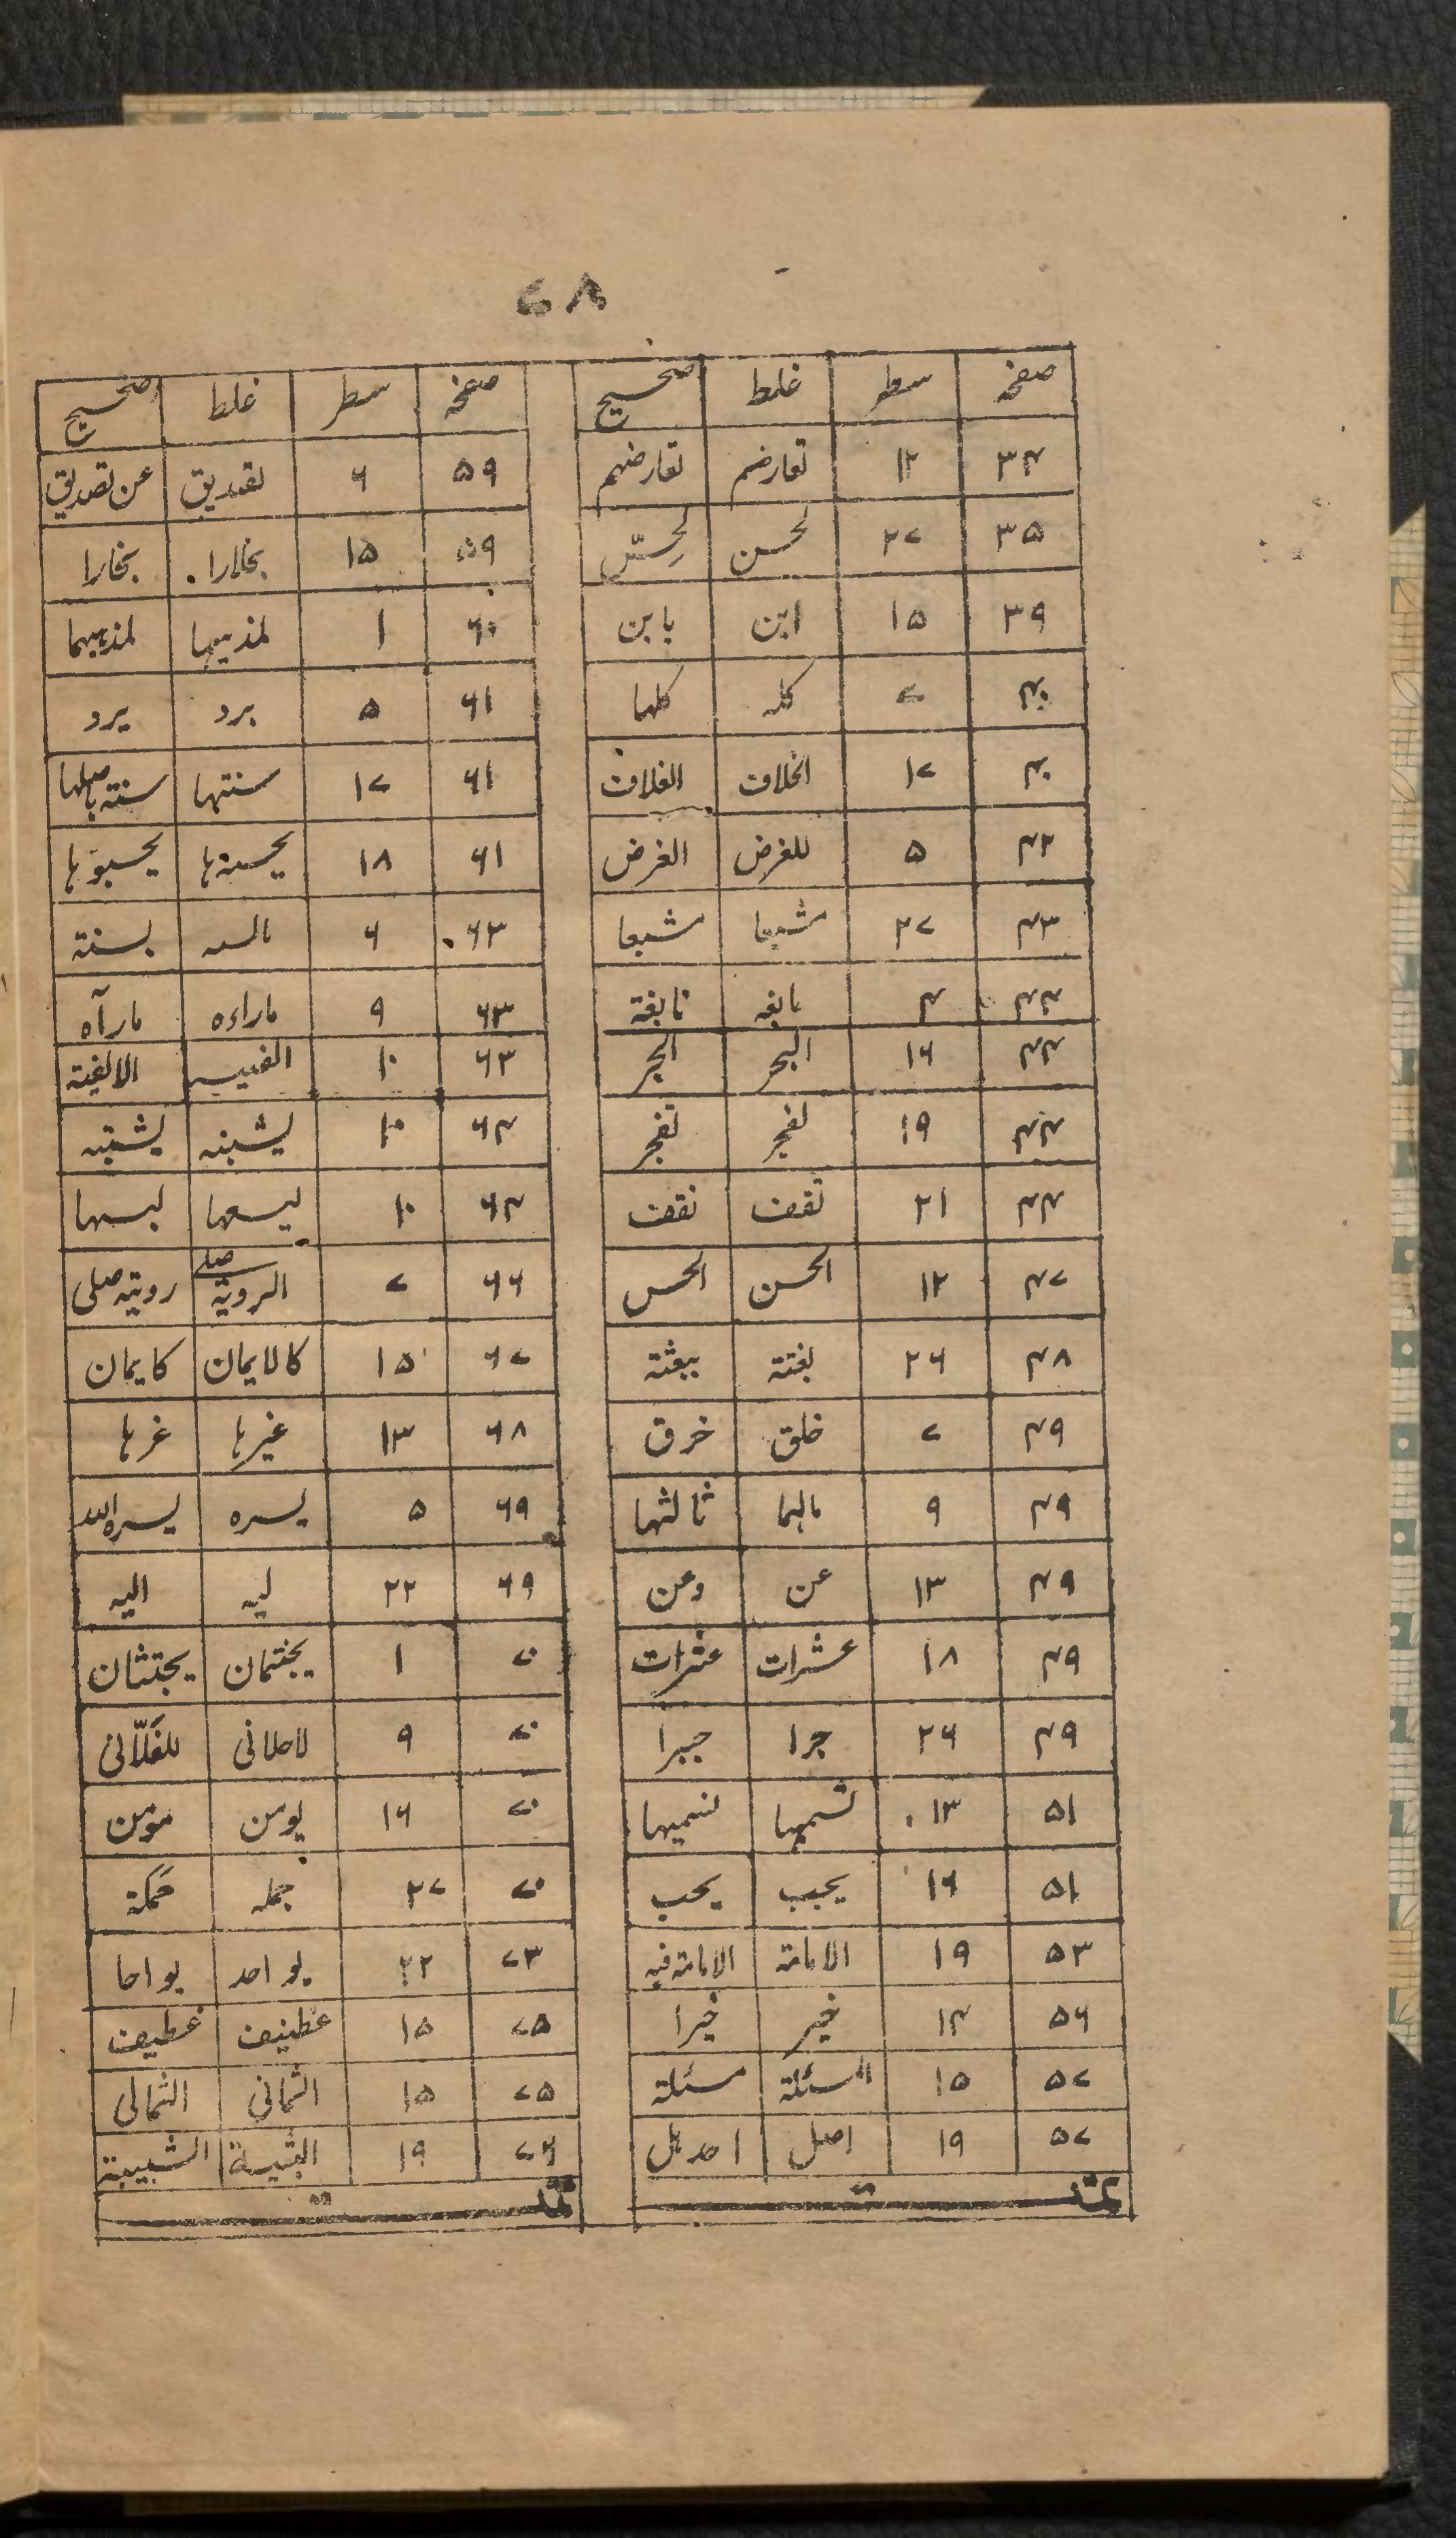 ۷۸
صفحہ سطر غلط صحیح
۳۴ ۱۲ تعارضم تعارضہم
۳۵ ۲۷ لحسن لحِسّ
۳۹ ۱۵ ابن بابن
۴۰ ۷ کلہ کلہا
۴۰ ۱۷ الخلاف الغلاف
۴۲ ۵ للغرض الغرض
۴۳ ۲۷ مشبعا
۴۴ ۴ نابغة
۴۴ ۱۶ البحر الحبر
۴۴ ۱۹ تفجر
۴۴ ۲۱ تقف نقف
۴۷ ۱۲ الحسن الحس
۴۸ ۲۶ بغتة ببعثة
۴۹ ۷ خلق خرق
۴۹ ۹ ثالثہا
۴۹ ۱۳ عن وعن
۴۹ ۱۸ عشرات عثرات
۴۹ ۲۶ جرا جبرا
۵۱ ۱۳ تسمیہا نسمیہا
۵۱ ۱۶ یجیب یجب
۵۳ ۱۹ الامامة الامامة فیہ
۵۶ ۱۴ خیر خیرا
۵۷ ۱۵ المسئلة مسئلة
۵۷ ۱۹ اصل احد بل
تمت
صفحہ سطر غلط صحیح
۵۹ ۶ تصدیق عن تصدیق
۵۹ ۱۵ بخلارا بخارا
۶۰ ۱ لمذہبہا لمذہبہما
۶۱ ۵ برد یرد
۶۱ ۱۷ سنتہا سنتہ باصلہا
۶۱ ۱۸ یحسبوہا
۶۳ ۶ بسنتہ
۶۳ ۹ ماراءہ مارآہ
۶۳ ۱۰ الالفیة
۶۴ ۱۰ یشبنہ یشتبہ
۶۴ ۱۰ لیسعہا لبسہا
۶۶ ۷ الرویة صلے رویتہ صلی
۶۷ ۱۵ کالایمان کایمان
۶۸ ۱۳ غیرہا غرہا
۶۹ ۵ یسرہ یسرہ اللہ
۶۹ ۲۲ لیہ الیہ
۷۰ ۱ یجتمان یجتثان
۷۰ ۹ للغلّانی
۷۰ ۱۶ یومن مومن
۷۰ ۲۷ جملہ
۷۳ ۲۲ یو احد یو احا
۷۵ ۱۵ عطینف غطیف
۷۵ ۱۵ الثمانی الثمالی
۷۶ ۱۹ الشبیبة
تمت